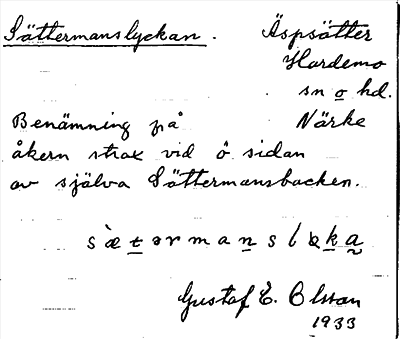 Sättermanslyckan.
Äspsätter
Hardemo
sn o hd.
Närke
Benämning på
åkern strax vid ö sidan
av själva Sättermansbacken.
Gustaf E. Olsson
1933